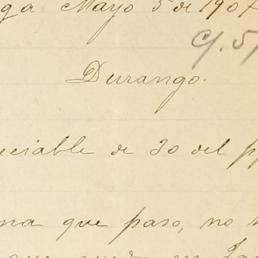 ga Mayo 5 de 1907
C. 5
Durango.
eciable de 30 del p
na que paso, no
que en